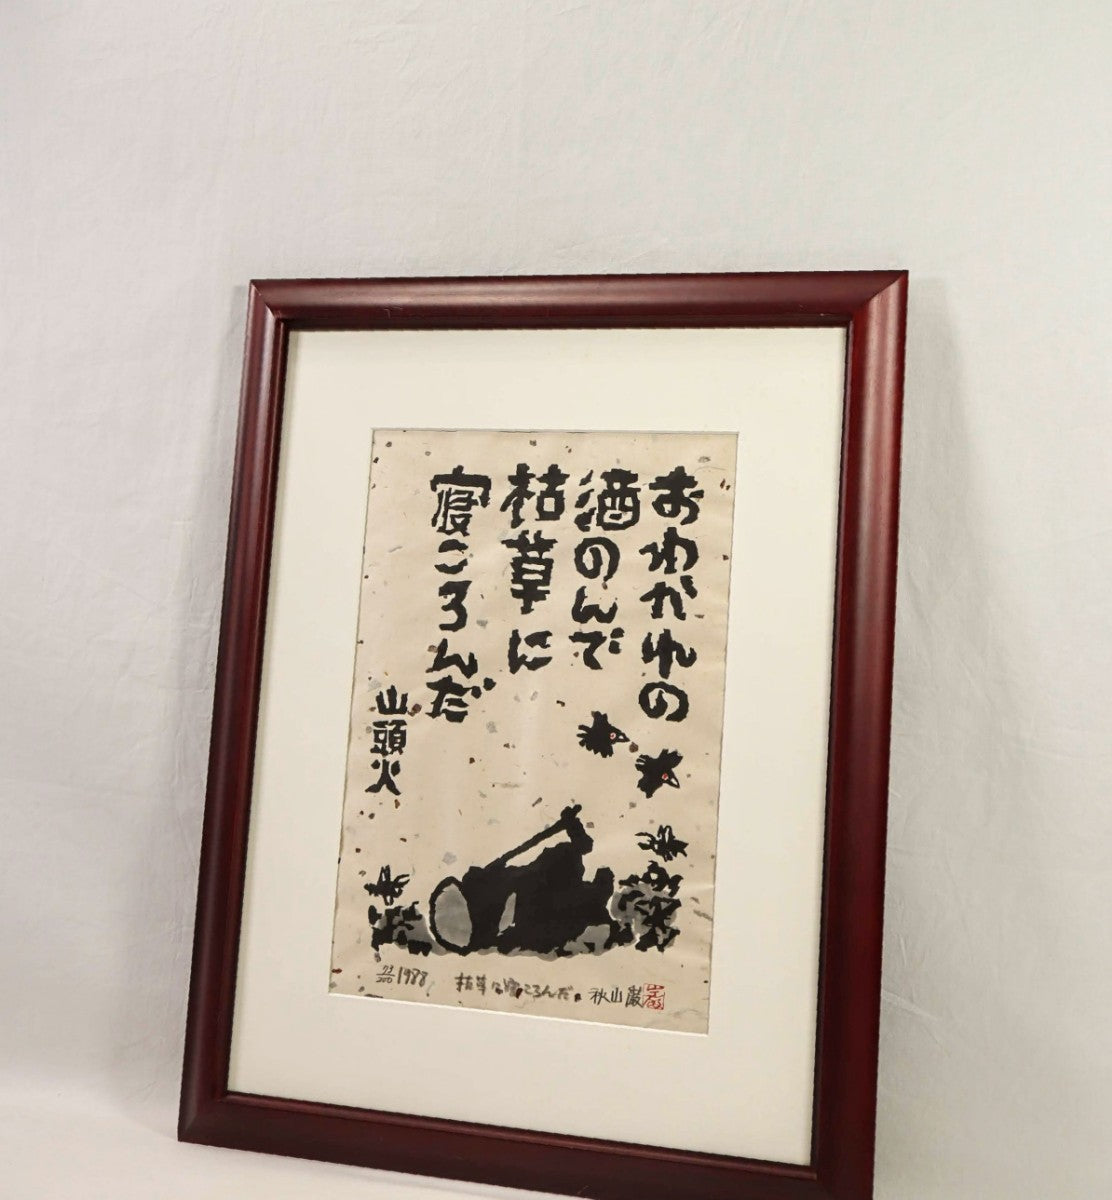 おわかれの
酒のんで
枯草に
寝ころんだ
山頭火
73/200 1988 枯草に寝ころんだ。 秋山巌